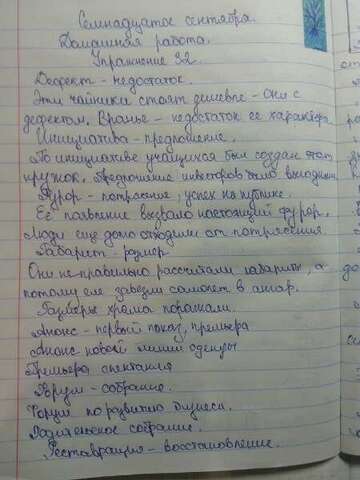 Семнадцатое сентября.
Домашняя работа.
Упражнение 32.
Дефект - недостаток.
Эти чайники стоят дешевле - они с
дефектом. Вранье - недостаток ее характера.
Инициатива - предложение.
По инициативе учащихся был создан этот
кружок. Предложение инвесторов было выгодным.
Фурор - потрясение, успех на публике.
Её появление вызвало настоящий фурор.
Люди еще долго отходили от потрясения.
Габарит - размер
Они не правильно рассчитали габариты, а
потому еле завезли самолет в ангар.
Размеры храма поражали.
Анонс - первый показ, премьера
Анонс новой линии одежды
Премьера спектакля
Форум - собрание.
Форум по развитию бизнеса.
Родительское собрание.
Реставрация - восстановление.